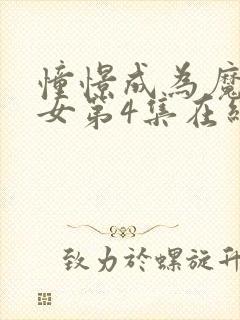 憧憬成為魔
女第4集在線
致力於螺旋升